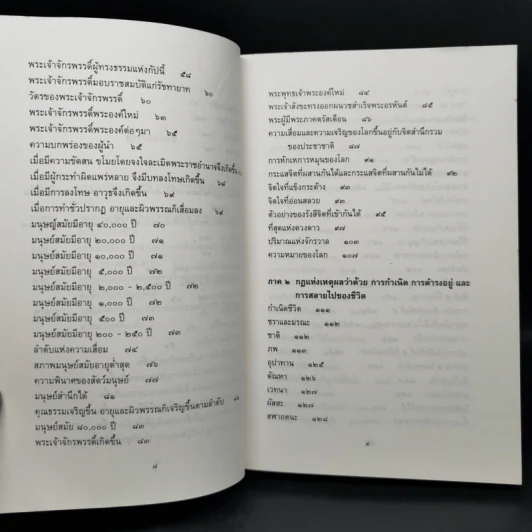 พระเจ้าจักรพรรดิ์ผู้ทรงธรรมแห่งกัปนี้ ๕๘
พระเจ้าจักรพรรดิ์มอบราชสมบัติแก่รัชทายาท ๖๐
วัตรของพระเจ้าจักรพรรดิ์ ๖๐
พระเจ้าจักรพรรดิ์พระองค์ใหม่ ๖๓
พระเจ้าจักรพรรดิ์พระองค์ต่อๆมา ๖๕
ความบกพร่องของผู้นำ ๖๕
เมื่อมีความขัดสน ขโมยโดยจงใจละเมิดพระราชอำนาจจึงเกิดขึ้น
เมื่อมีผู้กระทำผิดแพร่หลาย จึงมีบทลงโทษเกิดขึ้น ๖๘
เมื่อมีการลงโทษ อาวุธจึงเกิดขึ้น ๖๙
เมื่อการทำชั่วปรากฏ อายุและผิวพรรณก็เสื่อมลง ๖๙
มนุษย์สมัยมีอายุ ๔๐,๐๐๐ ปี ๗๐
มนุษย์สมัยมีอายุ ๒๐,๐๐๐ ปี ๗๑
มนุษย์สมัยมีอายุ ๑๐,๐๐๐ ปี ๗๑
มนุษย์สมัยมีอายุ ๕,๐๐๐ ปี ๗๒
มนุษย์สมัยมีอายุ ๒,๐๐๐ - ๒,๕๐๐ ปี ๗๒
มนุษย์สมัยมีอายุ ๑,๐๐๐ ปี ๗๓
มนุษย์สมัยมีอายุ ๕๐๐ ปี ๗๓
มนุษย์สมัยมีอายุ ๒๐๐ - ๒๕๐ ปี ๗๓
ลำดับแห่งความเสื่อม ๗๔
สภาพมนุษย์สมัยอายุต่ำสุด ๗๖
ความพินาศของสัตว์มนุษย์ ๗๗
มนุษย์สำนึกได้ ๘๑
คุณธรรมเจริญขึ้น อายุและผิวพรรณก็เจริญขึ้นตามลำดับ
มนุษย์สมัย ๘๐,๐๐๐ ปี ๘๓
พระเจ้าจักรพรรดิ์เกิดขึ้น ๘๓
๘
พระพุทธเจ้าพระองค์ใหม่ ๘๔
พระเจ้าสังขะทรงออกผนวชสำเร็จพระอรหันต์ ๘๕
พระผู้มีพระภาคตรัสเตือน ๘๖
ความเสื่อมและความเจริญของโลกขึ้นอยู่กับจิตสำนึกรวม
ของประชาชาติ ๘๗
การหักเหการหมุนของโลก ๙๑
กระแสจิตที่ผสานกันได้และกระแสจิตที่ผสานกันไม่ได้ ๙๒
จิตใจที่แข็งกระด้าง ๙๓
จิตใจที่อ่อนสลวย ๙๓
ตัวอย่างของรังสีจิตที่เข้ากันได้ ๙๕
ที่สุดแห่งดวงดาว ๙๗
ปริมาณแห่งจักรวาล ๑๐๓
ความหมายของโลก ๑๐๗
ภาค ๒ กฎแห่งเหตุผลว่าด้วย การกำเนิด การดำรงอยู่ และ
การสลายไปของชีวิต
กำเนิดชีวิต ๑๑๑
ชราและมรณะ ๑๑๒
ชาติ ๑๑๒
ภพ ๑๑๓
อุปาทาน ๑๒๕
ตัณหา ๑๒๖
เวทนา ๑๒๗
ผัสสะ ๑๒๗
สฬายตนะ ๑๒๘
๙